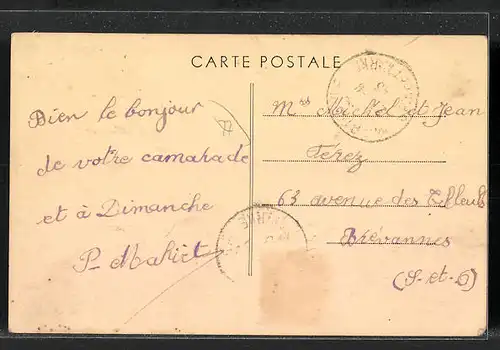 CARTE POSTALE
Bien le bonjour
de votre camarade
et à Dimanche
P. Mahiet
Mrs Michel et Jean
Férez
63 avenue des Tilleuls
Brévannes
(S-et-O)